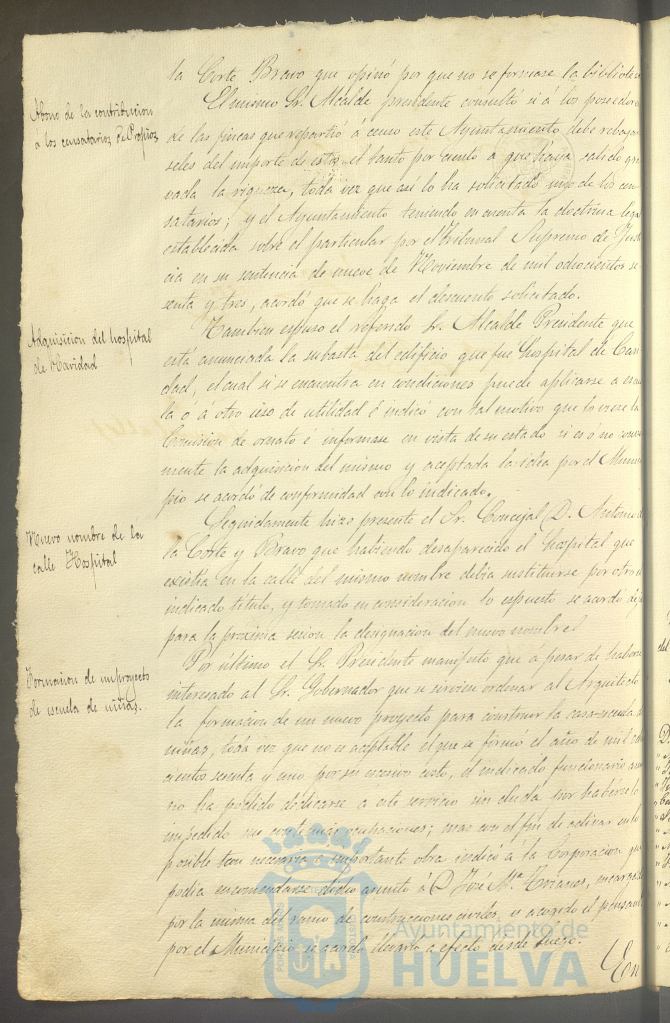 la Corte Bravo que opinó por que no se formase la bibliotec
Abono de la contribucion
a los censatarios de Propios
El mismo Sr. Alcalde presidente consultó si á los poseedor
de las fincas que repartió a censo este Ayuntamiento debe rebajar
seles del importe de este el tanto por ciento a que haya salido gra
vada la riqueza, toda vez que asi lo ha solicitado uno de los cen
satarios; y el Ayuntamiento teniendo en cuenta la doctrina legal
establecida sobre el particular por el Tribunal Supremo de Just
cia en su sentencia de nueve de Noviembre de mil ochocientos se
senta y tres, acordó que se haga el descuento solicitado.
Adquisicion del hospital
de Caridad
Tambien espuso el referido Sr. Alcalde Presidente que
está anunciada la subasta del edificio que fue hospital de Cari
dad, el cual si se encuentra en condiciones puede aplicarse a escue
la ó á otro uso de utilidad é indicó con tal motivo que lo viese la
Comision de ornato é informase en vista de su estado si es ó no conve
niente la adquisicion del mismo y aceptada la idea por el Muni
pio se acordó de conformidad con lo indicado.
Nuevo nombre de la
calle Hospital
Seguidamente hizo presente el Sr. Concejal D. Antonio d
la Corte y Bravo que habiendo desaparecido el hospital que
existia en la calle del mismo nombre debia sustituirse por otro e
indicado titulo, y tomado en consideracion lo espuesto se acordó
para la proxima sesion la designacion del nuevo nombre.
Formacion de un proyecto
de escuela de niñas.
Por último el Sr. Presidente manifestó que á pesar de haberse
interesado al Sr. Gobernador que se sirviese ordenar al Arquitecto
la formacion de un nuevo proyecto para construir la casa-escuela d
niñas, toda vez que no es aceptable el que se formó el año de mil och
cientos sesenta y uno por su escesivo costo, el indicado funcionario aun
no ha podido dedicarse a este servicio sin duda por habérselo
impedido sus ocupaciones; mas con el fin de activar en lo
posible tan necesaria é importante obra indicó á la Corporacion que
podia encomendarse dicho asunto á D. José Mª encarga
por la misma del ramo de construcciones civiles, y acorde el
por el Municipio se acordó llevarla a efecto desde luego.
En
Ayuntamiento de
HUELVA